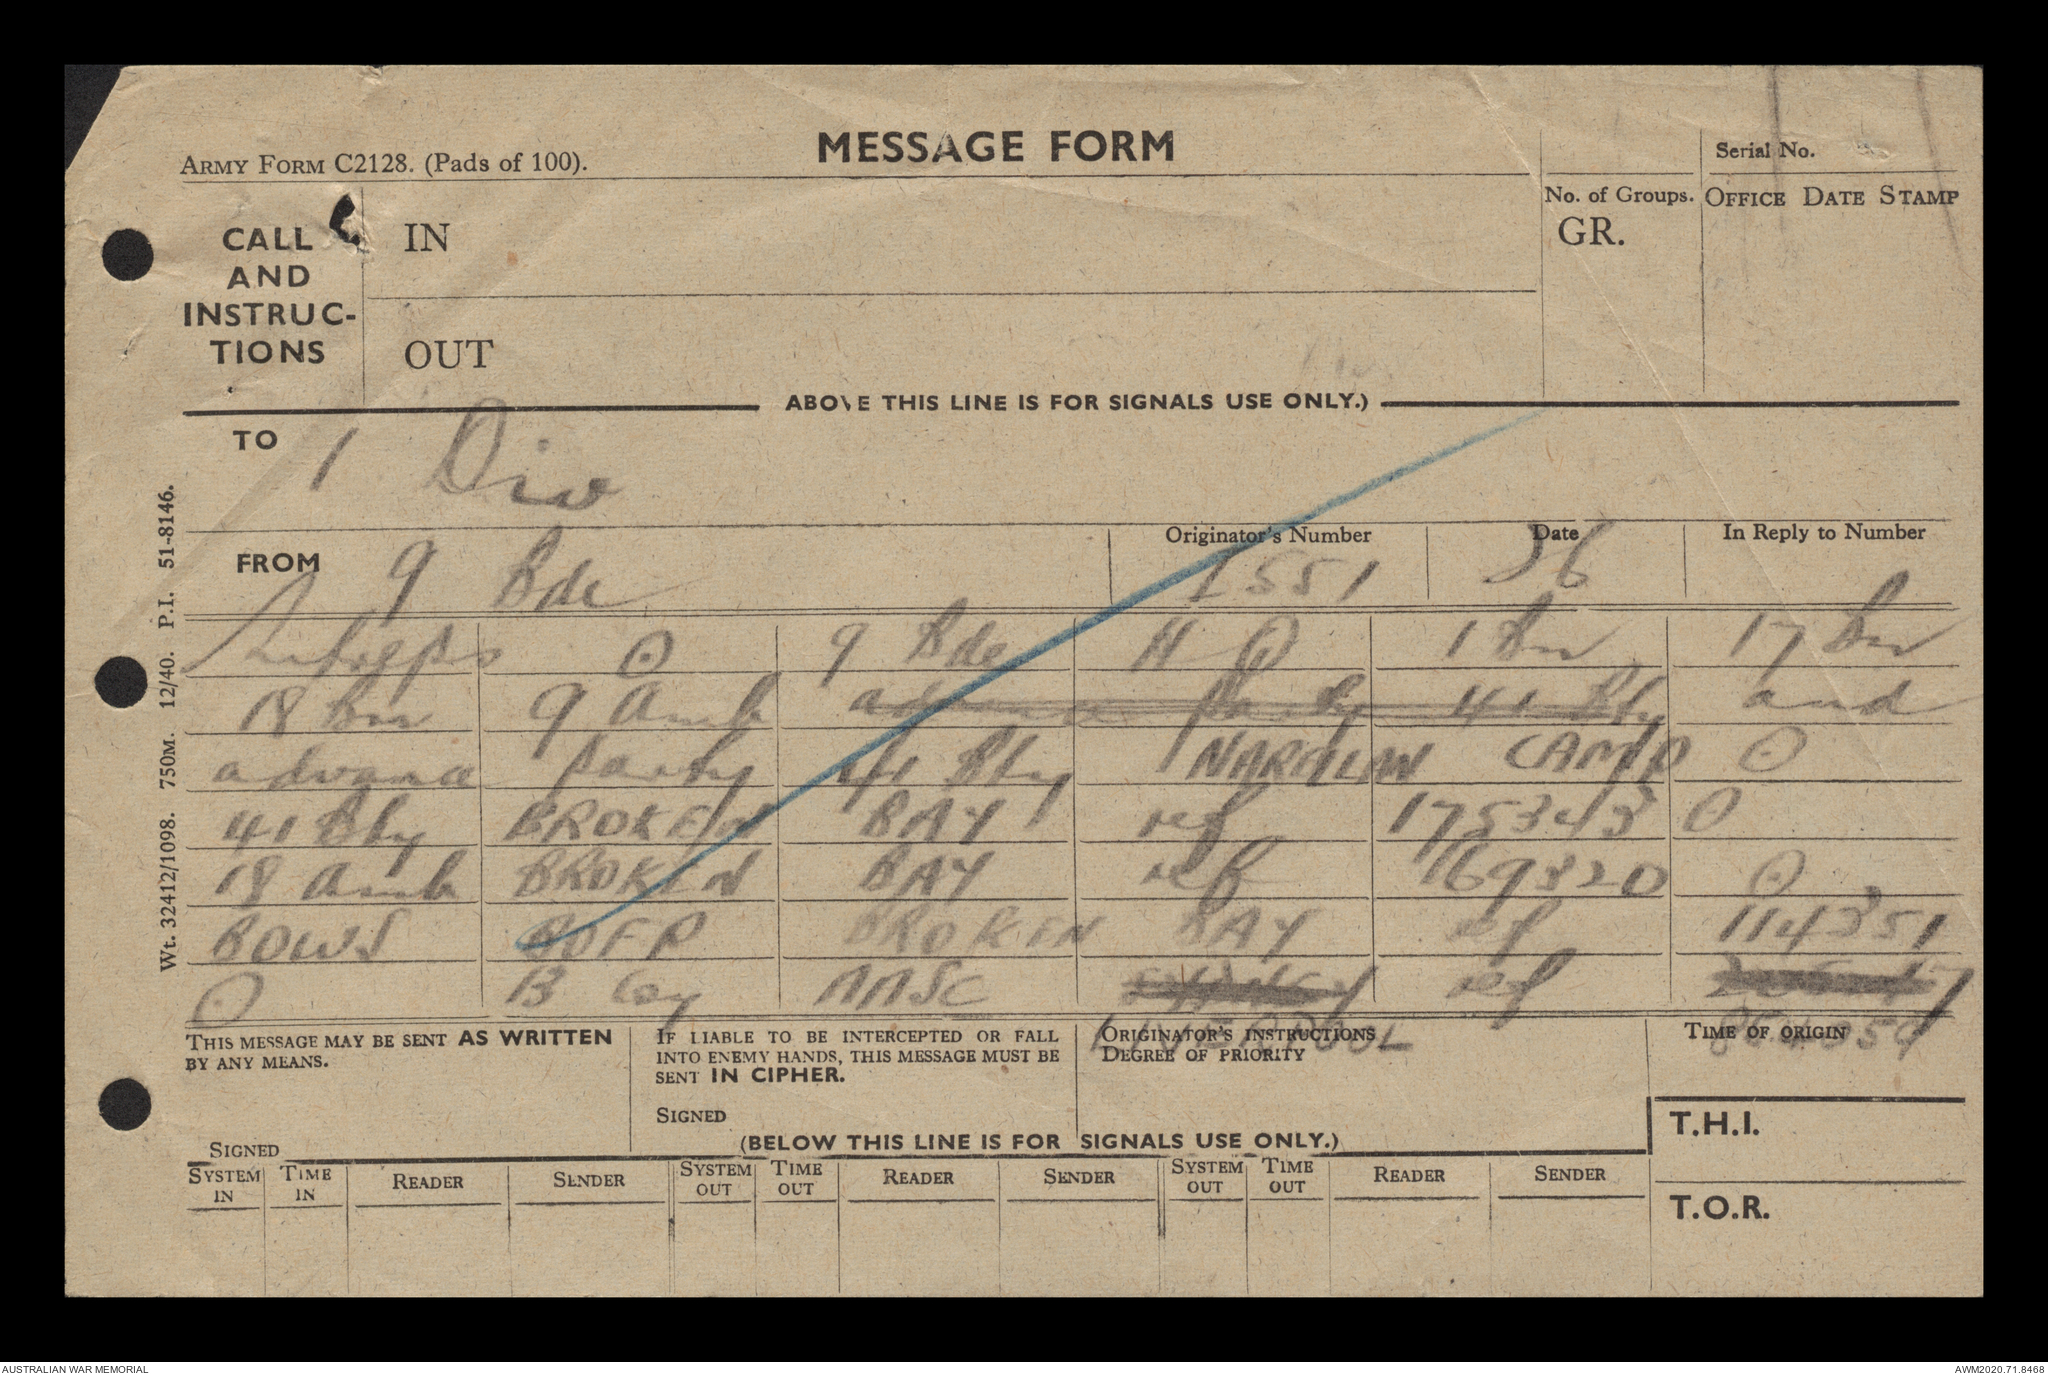 MESSAGE FORM
ARMY FORM C2128. (Pads of 100).
Serial No.
No. of Groups.
GR.
OFFICE DATE STAMP
CALL
AND
INSTRUC-
TIONS
IN
OUT
ABOVE THIS LINE IS FOR SIGNALS USE ONLY.)
TO 1 Div
FROM 9 Bde
Originator's Number
I 551
Date
26
In Reply to Number
⊙ 9 Bde H Q 1 Bn 17 Bn
18 Bn 9 Amb advance party 41 Bty and
advance party 41 Bty NARELLAN CAMP ⊙
41 Bty BROKEN BAY ref 175343 ⊙
18 Amb BROKEN BAY ref 169320 ⊙
BOWS BOFP BROKEN BAY ref 114351
⊙ B Coy AASC ref
LIVERPOOL 854059
THIS MESSAGE MAY BE SENT AS WRITTEN
BY ANY MEANS.
SIGNED
IF LIABLE TO BE INTERCEPTED OR FALL
INTO ENEMY HANDS, THIS MESSAGE MUST BE
SENT IN CIPHER.
SIGNED
ORIGINATOR'S INSTRUCTIONS
DEGREE OF PRIORITY
TIME OF ORIGIN
(BELOW THIS LINE IS FOR SIGNALS USE ONLY.)
T.H.I.
T.O.R.
SYSTEM IN TIME IN READER SENDER SYSTEM OUT TIME OUT READER SENDER SYSTEM OUT TIME OUT READER SENDER
Wt. 32412/1098. 750M. 12/40. P.I. 51-8146.
AUSTRALIAN WAR MEMORIAL
AWM2020.71.8468